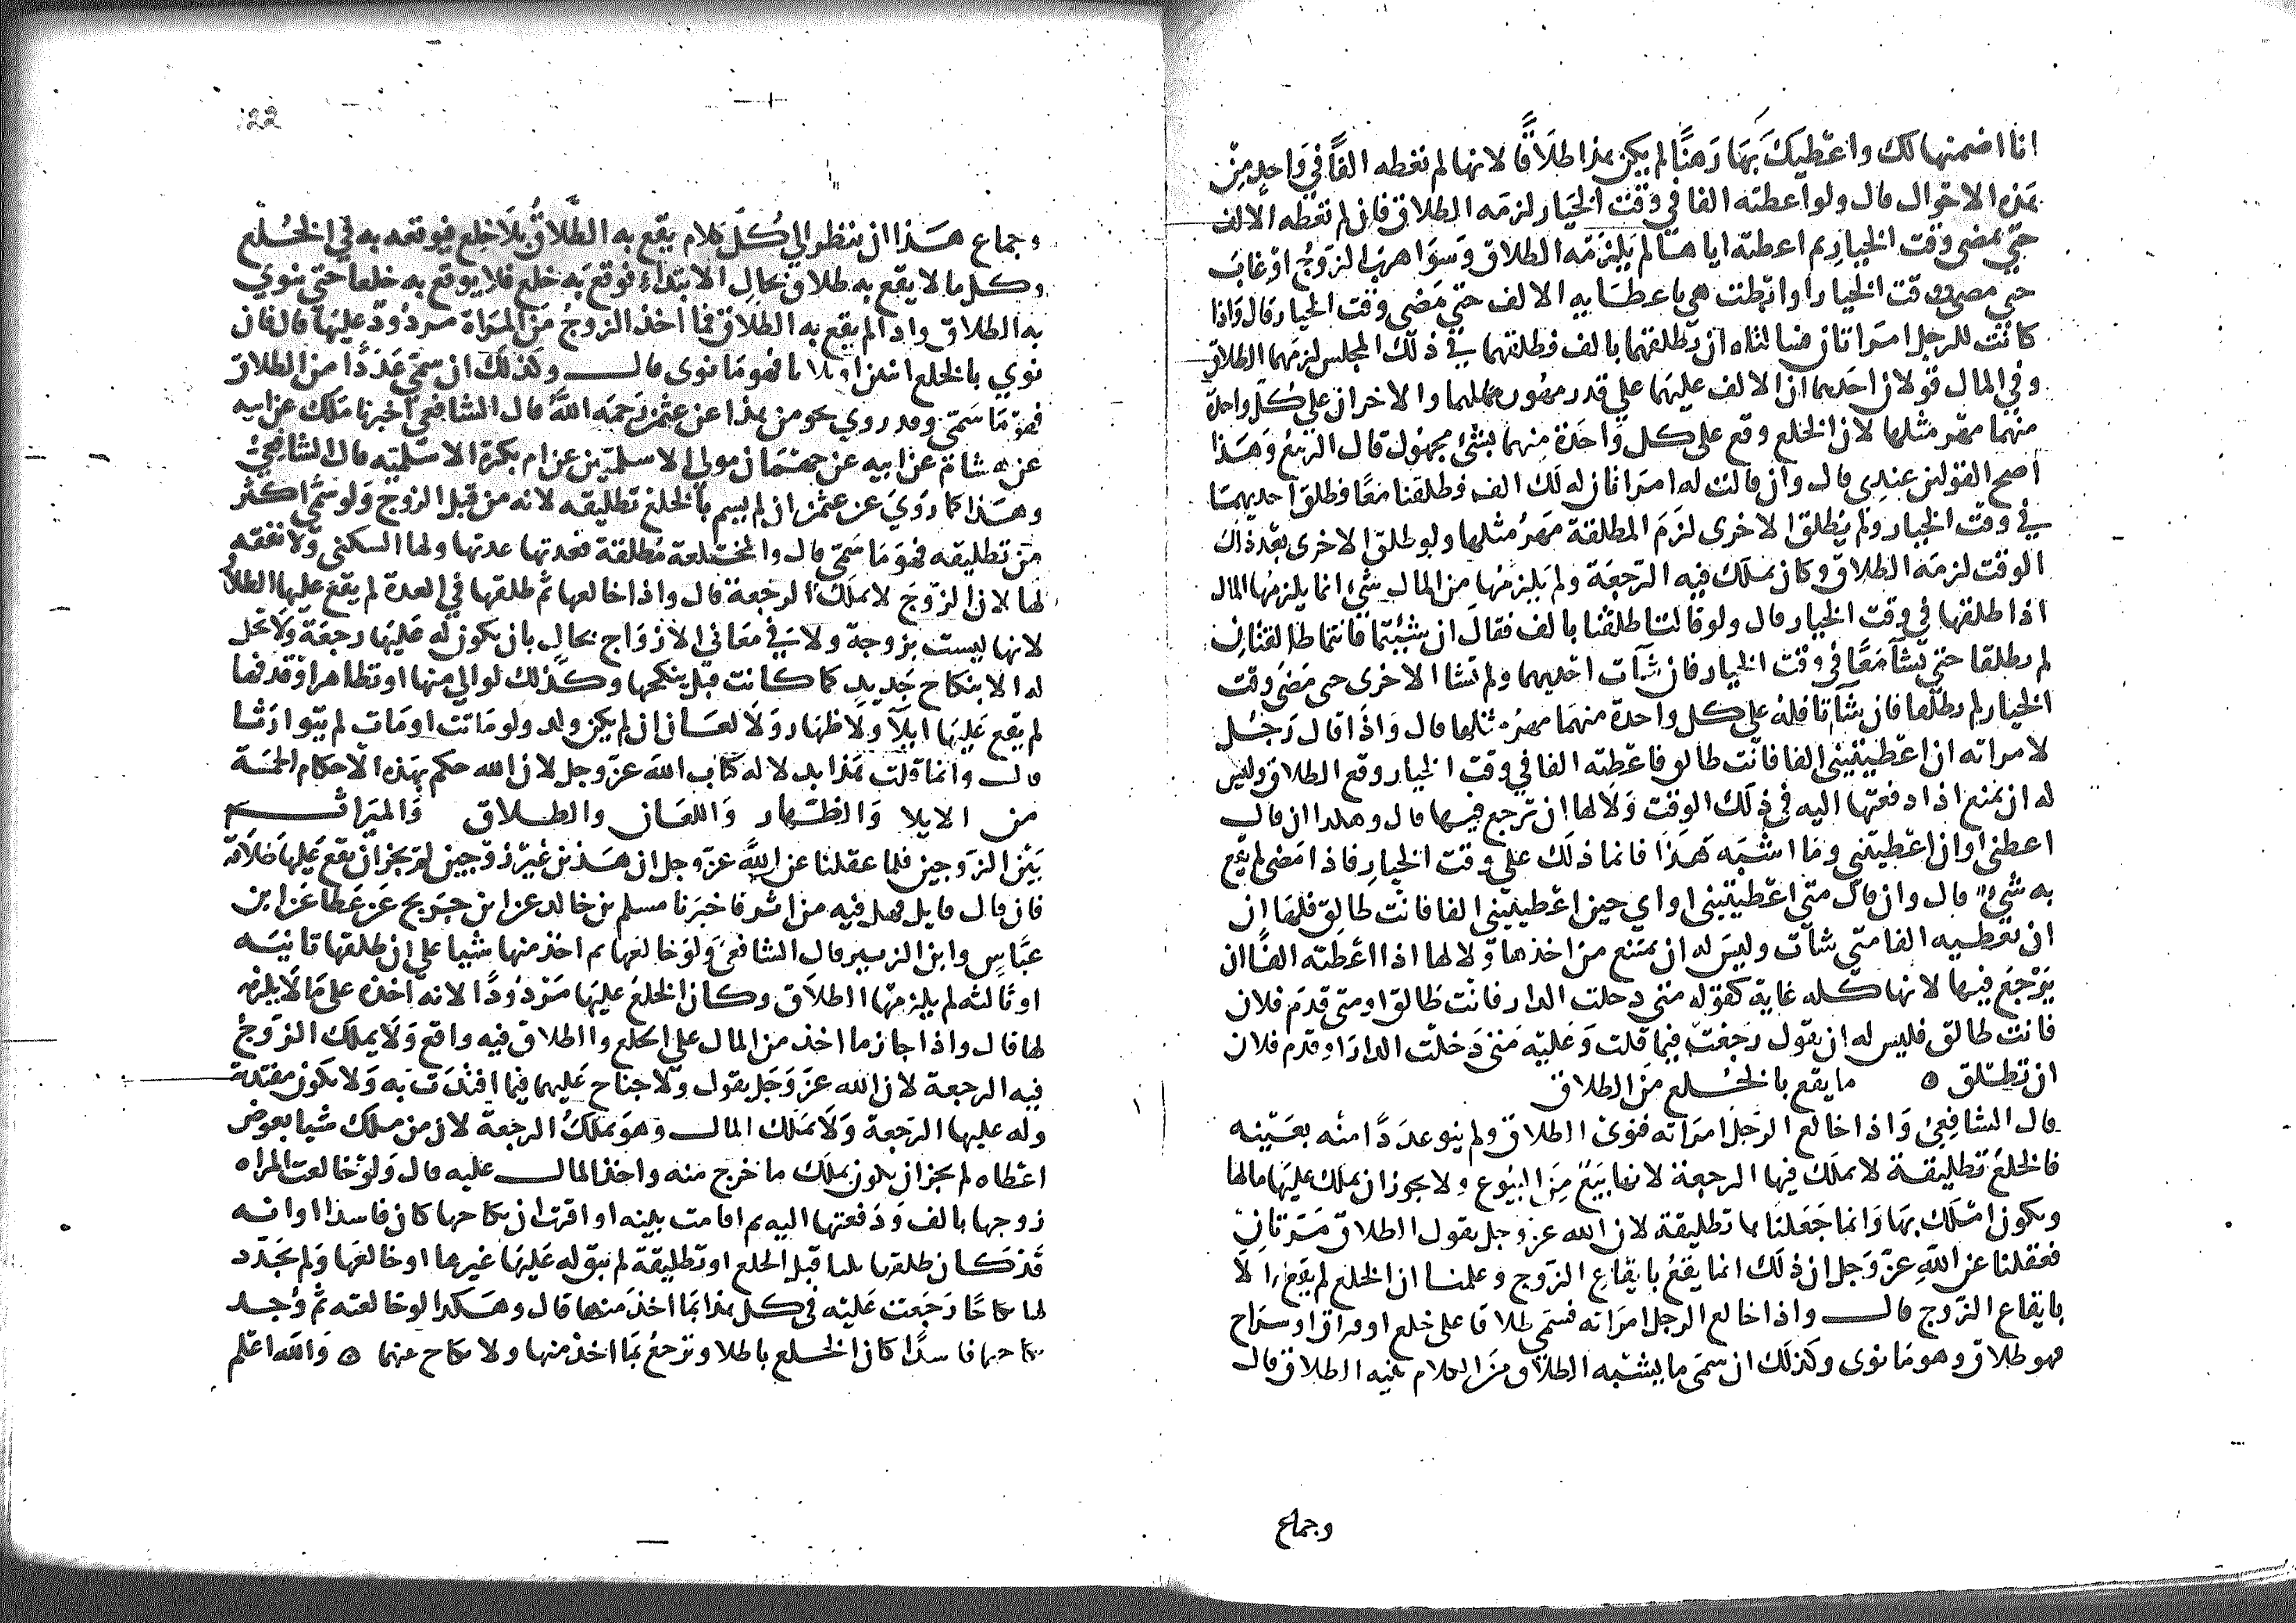 انا اضمنها لك واعطيك بها رهنا لم يكن هذا طلاقا لانها لم تعطه الفا في واحد من
هذه الاحوال قال ولو اعطته الفا في وقت الخيار لزمه الطلاق فان لم تعطه الالف
حتى يمضي وقت الخيار ثم اعطته اياها لم يلزمه الطلاق وسوا هرب الزوج او غاب
حتى مضى وقت الخيار او ابطت هي باعطايه الالف حتى مضى وقت الخيار قال واذا
كانت للرجل امراتان فسالتاه ان يطلقهما بالف فطلقهما في ذلك المجلس لزمهما الطلاق
وفي المال قولان احدهما ان الالف عليهما على قدر مهور مثلهما والاخر ان على كل واحدة
منهما مهر مثلها لان الخلع وقع على كل واحدة منهما بشئ مجهول قال الربيع وهذا
اصح القولين عندي قال وان قالت له امراتان له لك الف فطلقنا معا فطلق احديهما
في وقت الخيار ولم يطلق الاخرى لزم المطلقة مهر مثلها ولو طلق الاخرى بعد ذلك
الوقت لزمه الطلاق وكان يملك فيه الرجعة ولم يلزمها من المال شئ انما يلزمها المال
اذا طلقها في وقت الخيار قال ولو قالتا طلقنا بالف فقال ان شئتما فانتما طالقتان
لم يطلقا حتى تشآ معا في وقت الخيار فان شآت احديهما ولم تشا الاخرى حتى مضى وقت
الخيار لم يطلقا فان شآتا فله على كل واحدة منهما مهر مثلها قال واذا قال رجل
لامراته ان اعطيتيني الفا فانت طالق فاعطته الفا في وقت الخيار وقع الطلاق وليس
له ان يمنع اذا دفعتها اليه في ذلك الوقت ولا لها ان ترجع فيها قال وهكذا ان قال
اعطني او ان اعطيتني وما اشبه هذا فانما ذلك على وقت الخيار فاذا مضى لم يقع
به شئ قال وان قال متى اعطيتيني او اي حين اعطيتيني الفا فانت طالق فلها ان
ان تعطيه الفا متى شآت وليس له ان يمتنع من اخذها ولا لها اذا اعطته الفا ان
يرجع فيها لانها كله غاية كقوله متى دخلت الدار فانت طالق او متى قدم فلان
فانت طالق فليس له ان يقول رجعت فيما قلت وعليه متى دخلت الدار او قدم فلان
ان تطلق ٥ ما يقع بالخلع من الطلاق
قال الشافعي واذا خالع الرجل امراته فنوى الطلاق ولم ينو عددا منه بعينه
فالخلع تطليقة لا يملك فيها الرجعة لانها بيع من البيوع ولا يجوز ان يملك عليها مالها
ويكون املك بها وانما جعلناها تطليقة لان الله عز وجل يقول الطلاق مرتان
فعقلنا عن الله عز وجل ان ذلك انما يقع بايقاع الزوج وعلمنا ان الخلع لم يقع الا
بايقاع الزوج قال واذا خالع الرجل امراته فسمى طلاقا على خلع او فراق او سراح
فهو طلاق وهو ما نوى وكذلك ان سمى ما يشبه الطلاق من الكلام بنيه الطلاق قال
وجماع
وجماع هذا ان ينظر الي كل كلام يقع به الطلاق بلا خلع فيوقعه به في الخلع
وكل ما لا يقع به طلاق بحال الابتداء فوقع به خلع فلا يوقع به خلعا حتى ينوي
به الطلاق واذا لم يقع به الطلاق فما اخذ الزوج من المراة مردود عليها قال فان
نوي بالخلع اثنين او ثلاثا فهو ما نوى قال وكذلك ان سمى عددا من الطلاق
فهو ما سمى وقد روي نحو من هذا عن عثمن رحمه الله قال الشافعي اخبرنا ملك عن ابيه
عن هشام عن ابيه عن جهمان مولى الاسلميين عن ام بكرة الاسلميه قال الشافعي
وهذا كما روي عن عثمن ان لم يسم بالخلع تطليقه لانه من قبل الزوج ولو سمى اكثر
من تطليقه فهو ما سمى قال والمختلعة مطلقة فعدتها عدتها ولها السكنى ولا نفقه
لها لان الزوج لا يملك الرجعة قال واذا خالعها ثم طلقها في العدة لم يقع عليها الطلاق
لانها ليست بزوجة ولا في معاني الازواج بحال بان يكون له عليها رجعة ولا تحل
له الا بنكاح جديد كما كانت قبل ينكحها وكذلك لو الي منها او تظاهر او قذفها
لم يقع عليها ايلآ ولا ظهار ولا لعان ان لم يكن ولد ولو ماتت او مات لم يتوارثا
قال وانما قلت هذا بدلاله كتاب الله عز وجل لان الله حكم بهذه الاحكام الخمسة
من الايلا والظهار واللعان والطلاق والميراث
بين الزوجين فلما عقلنا عن الله عز وجل ان هذين غير زوجين لم يجز ان يقع عليها طلاقه
فان قال قايل فهل فيه من اثر فاخبرنا مسلم بن خالد عن ابن جريج عن عطا عن ابن
عباس وابن الزبير قال الشافعي ولو خالعها ثم اخذ منها شيا على ان طلقها ثانيه
او ثالثه لم يلزمها الطلاق وكان الخلع عليها مردودا لانه اخذه على ما لا يلزمه
لها قال واذا جاز ما اخذ من المال على الخلع والطلاق فيه واقع ولا يملك الزوج
فيه الرجعة لان الله عز وجل يقول ولا جناح عليهما فيما افتدت به ولا تكون مفتدية
وله عليها الرجعة ولا يملك المال وهو يملك الرجعة لان من ملك شيا بعوض
اعطاه لم يجز ان يكون يملك ما خرج منه واخذ المال عليه قال ولو خالعت المراه
زوجها بالف ودفعتها اليه ثم اقامت بينه او اقر ان نكاحها كان فاسدا او انه
قد كان طلقها ثلثا قبل الخلع او تطليقة لم تبق له عليها غيرها او خالعها ولم يجدد
لها نكاحا رجعت عليه في كل هذا بما اخذ منها قال وهكذا لو خالعته ثم وجد
نكاحهما فاسدا كان الخلع باطلا وترجع بما اخذ منها ولا نكاح بينهما ٥ والله اعلم